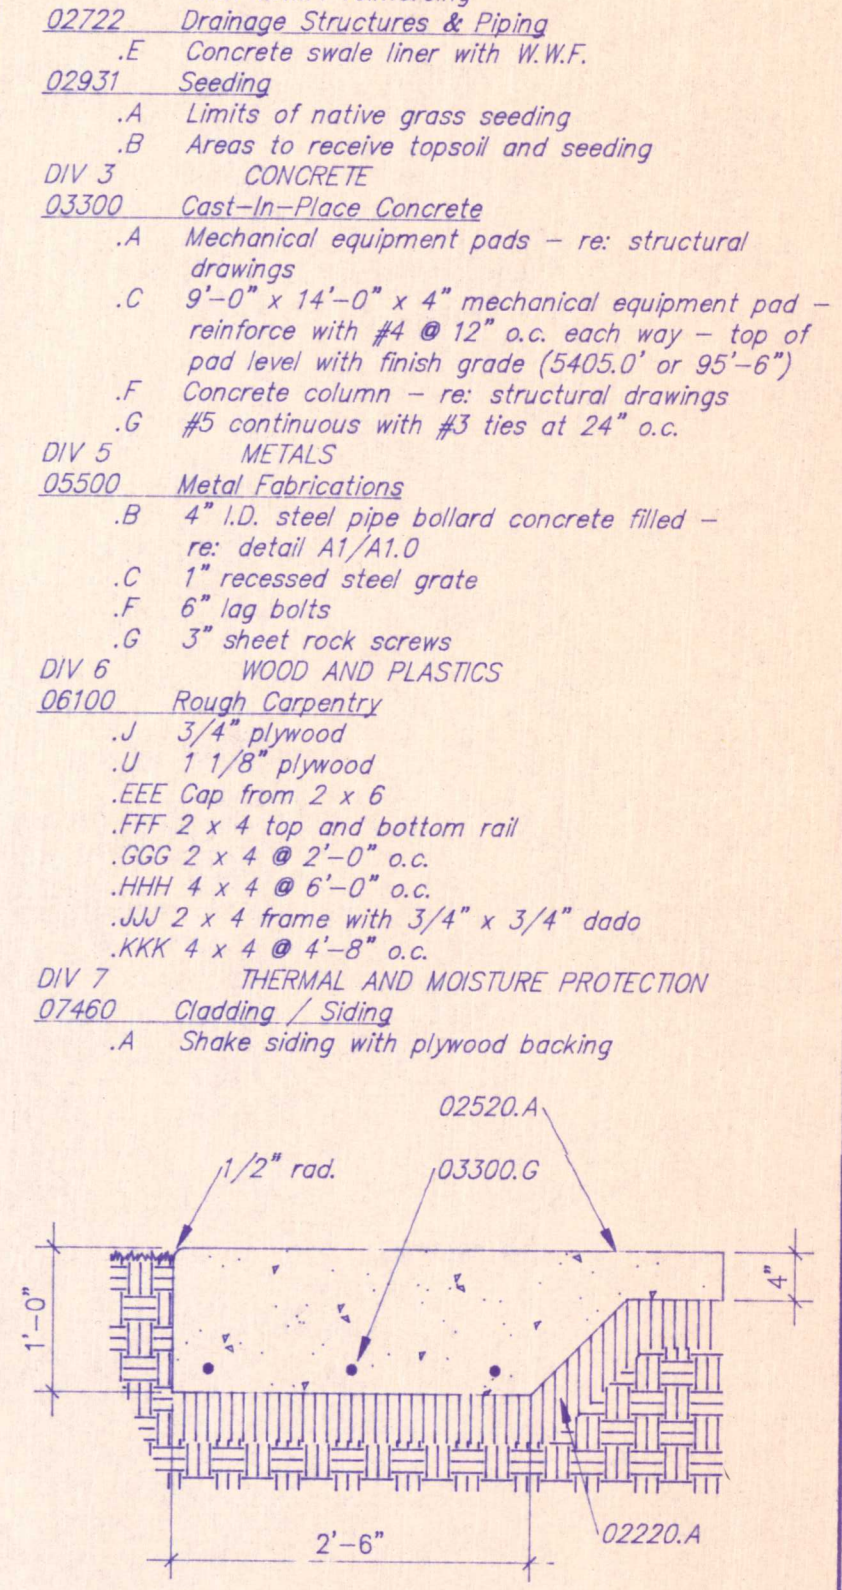 02722 Drainage Structures & Piping
.E Concrete swale liner with W.W.F.
02931 Seeding
.A Limits of native grass seeding
.B Areas to receive topsoil and seeding
DIV 3 CONCRETE
03300 Cast-In-Place Concrete
.A Mechanical equipment pads – re: structural
drawings
.C 9'-0" x 14'-0" x 4" mechanical equipment pad –
reinforce with #4 @ 12" o.c. each way – top of
pad level with finish grade (5405.0' or 95'-6")
.F Concrete column – re: structural drawings
.G #5 continuous with #3 ties at 24" o.c.
DIV 5 METALS
05500 Metal Fabrications
.B 4" I.D. steel pipe bollard concrete filled –
re: detail A1/A1.0
.C 1" recessed steel grate
.F 6" lag bolts
.G 3" sheet rock screws
DIV 6 WOOD AND PLASTICS
06100 Rough Carpentry
.J 3/4" plywood
.U 1 1/8" plywood
.EEE Cap from 2 x 6
.FFF 2 x 4 top and bottom rail
.GGG 2 x 4 @ 2'-0" o.c.
.HHH 4 x 4 @ 6'-0" o.c.
.JJJ 2 x 4 frame with 3/4" x 3/4" dado
.KKK 4 x 4 @ 4'-8" o.c.
DIV 7 THERMAL AND MOISTURE PROTECTION
07460 Cladding / Siding
.A Shake siding with plywood backing
02520.A
1/2" rad.
03300.G
1'-0"
4"
2'-6"
02220.A